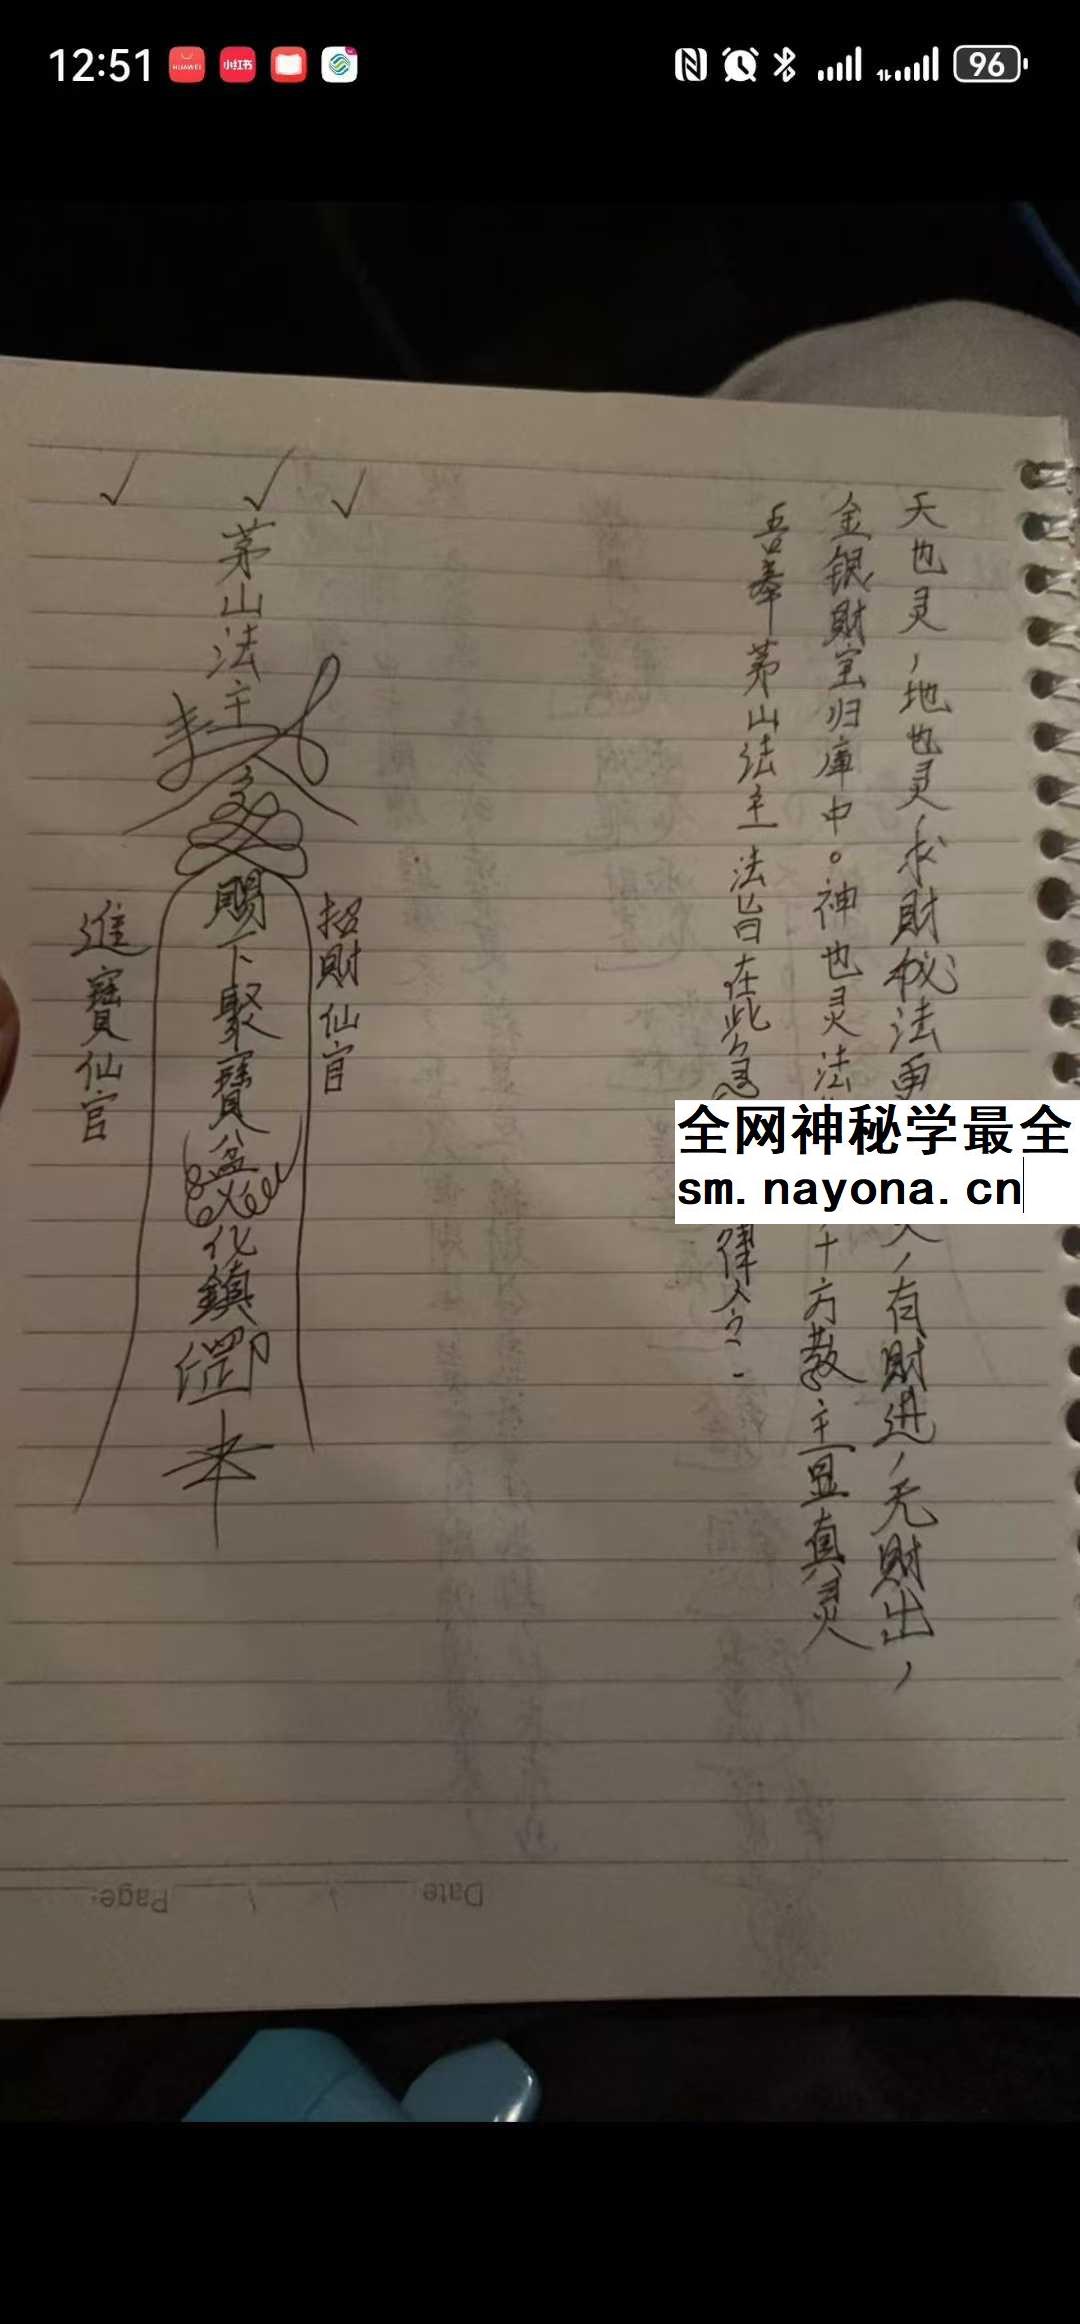 12:51
HUAWEI
小红书
96
天也灵，地也灵，求財秘法
，有財进，无財出，
金银財宝归库中。神也灵法
千方教主显真灵
吾奉茅山法主法旨在此急
律令
全网神秘学最全
sm.nayona.cn
茅山法主
招財仙官
賜下聚寶盆
化鎮
進寶仙官
Date
Page: